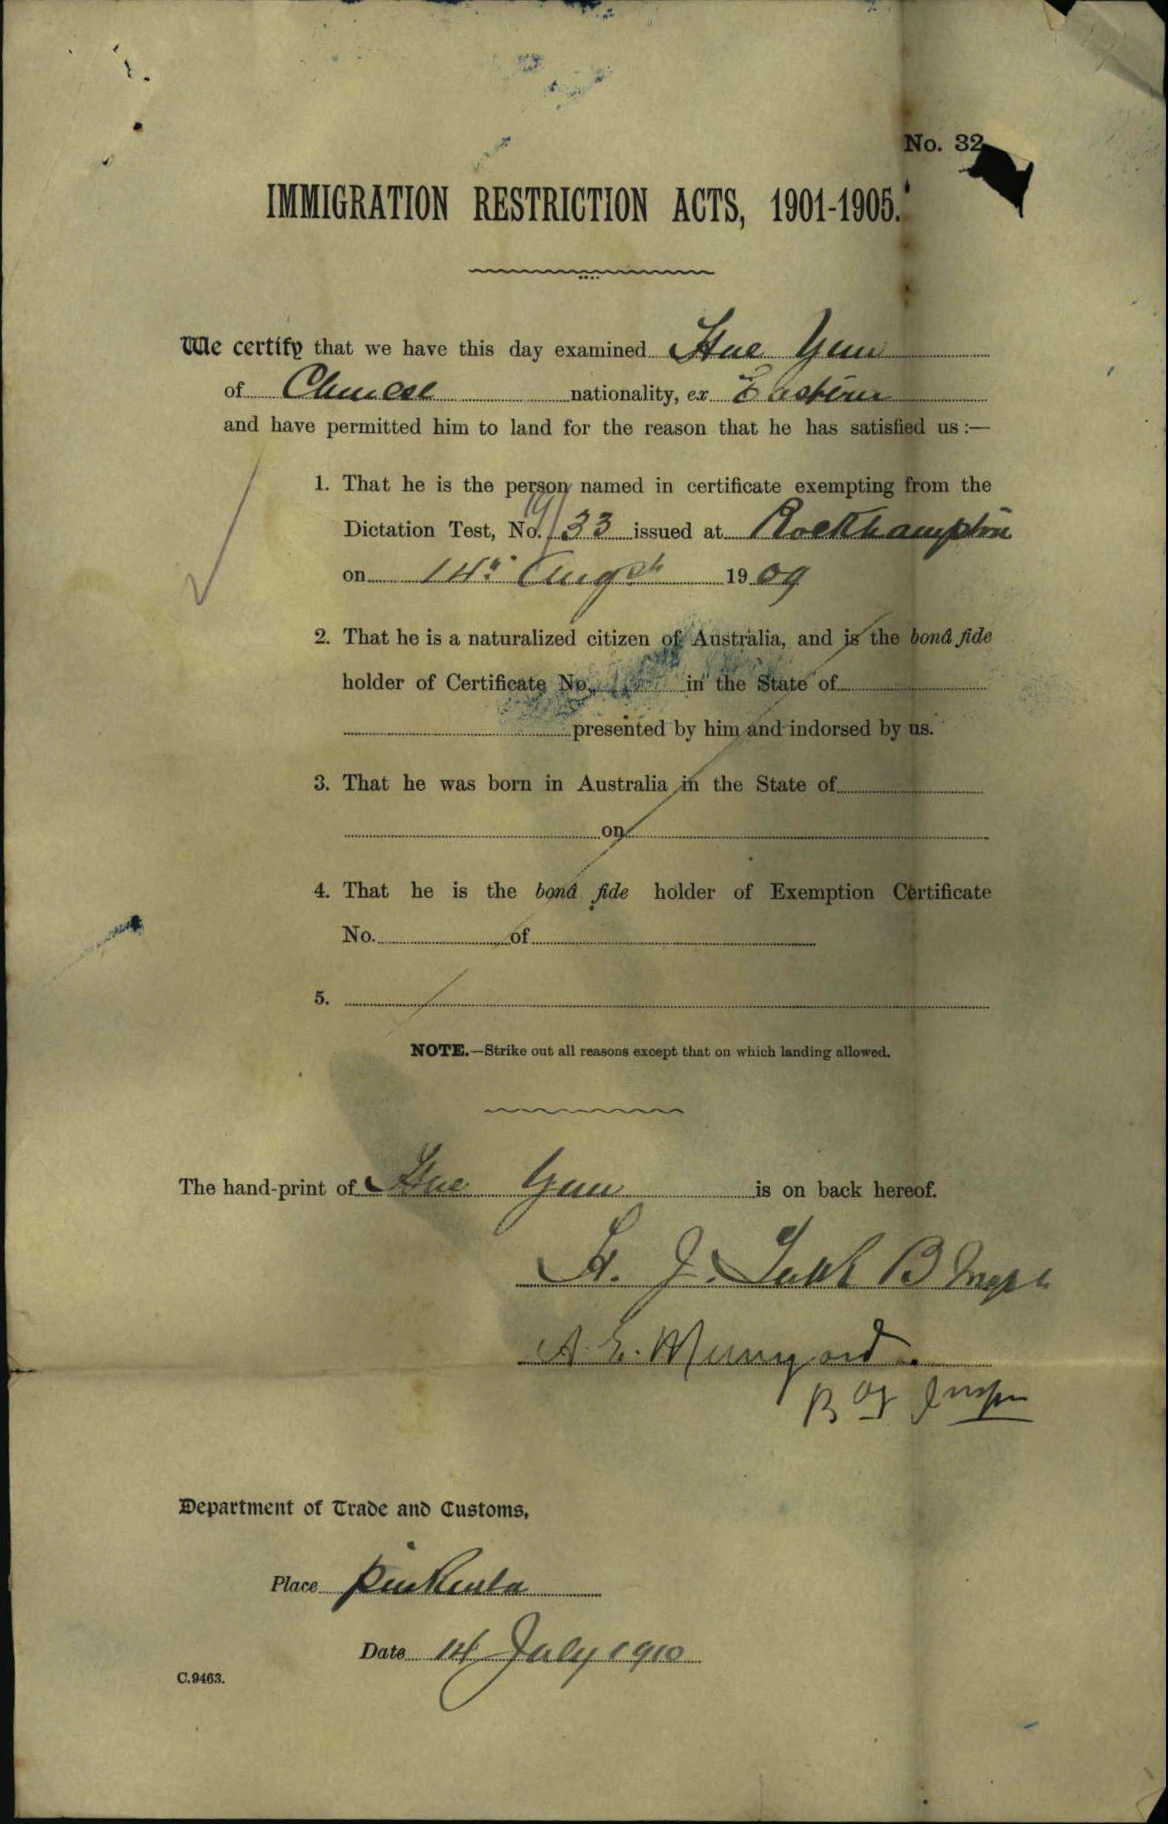 No. 32
IMMIGRATION RESTRICTION ACTS, 1901-1905.
We certify that we have this day examined Hue Yum
of Chinese nationality, ex Eastern
and have permitted him to land for the reason that he has satisfied us :—
1. That he is the person named in certificate exempting from the
Dictation Test, No. 19/33 issued at Rockhampton
on 14th Augst 1909
2. That he is a naturalized citizen of Australia, and is the bonâ fide
holder of Certificate No. in the State of
presented by him and indorsed by us.
3. That he was born in Australia in the State of
on
4. That he is the bonâ fide holder of Exemption Certificate
No. of
5.
NOTE.—Strike out all reasons except that on which landing allowed.
The hand-print of Hue Yum is on back hereof.
H. J. B Inspr
A. E. Mumford.
B Inspr
Department of Trade and Customs,
Place Pinkenba
Date 14 July 1910
C.9463.